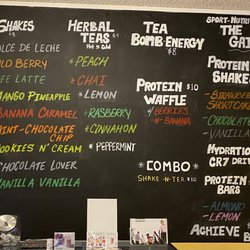 SHAKES
$8
OLCE DE LECHE
ILD BERRY
FE LATTE
MANGO PINEAPPLE
BANANA CARAMEL
MINT-CHOCOLATE CHIP
COOKIES N' CREAM
CHOCOLATE LOVER
VANILLA VANILLA
HERBAL
TEAS
Hot n Cold
* PEACH
* CHAI
* LEMON
* RASBERRY
* CINNAMON
* PEPPERMINT
TEA
BOMB ENERGY
$8
PROTEIN $10
WAFFLE
W/ BERRIES
N- BANANA
* COMBO *
SHAKE -N- TEA $10
SPORT-NUTRI
THE GA
PROTEIN
SHAKES
- STRAWBERR
- CHOCOLATE
- VANILL
HYDRATION
CR7 DRIV
PROTEIN
BARS
- ALMOND
- LEMON
ACHIEVE